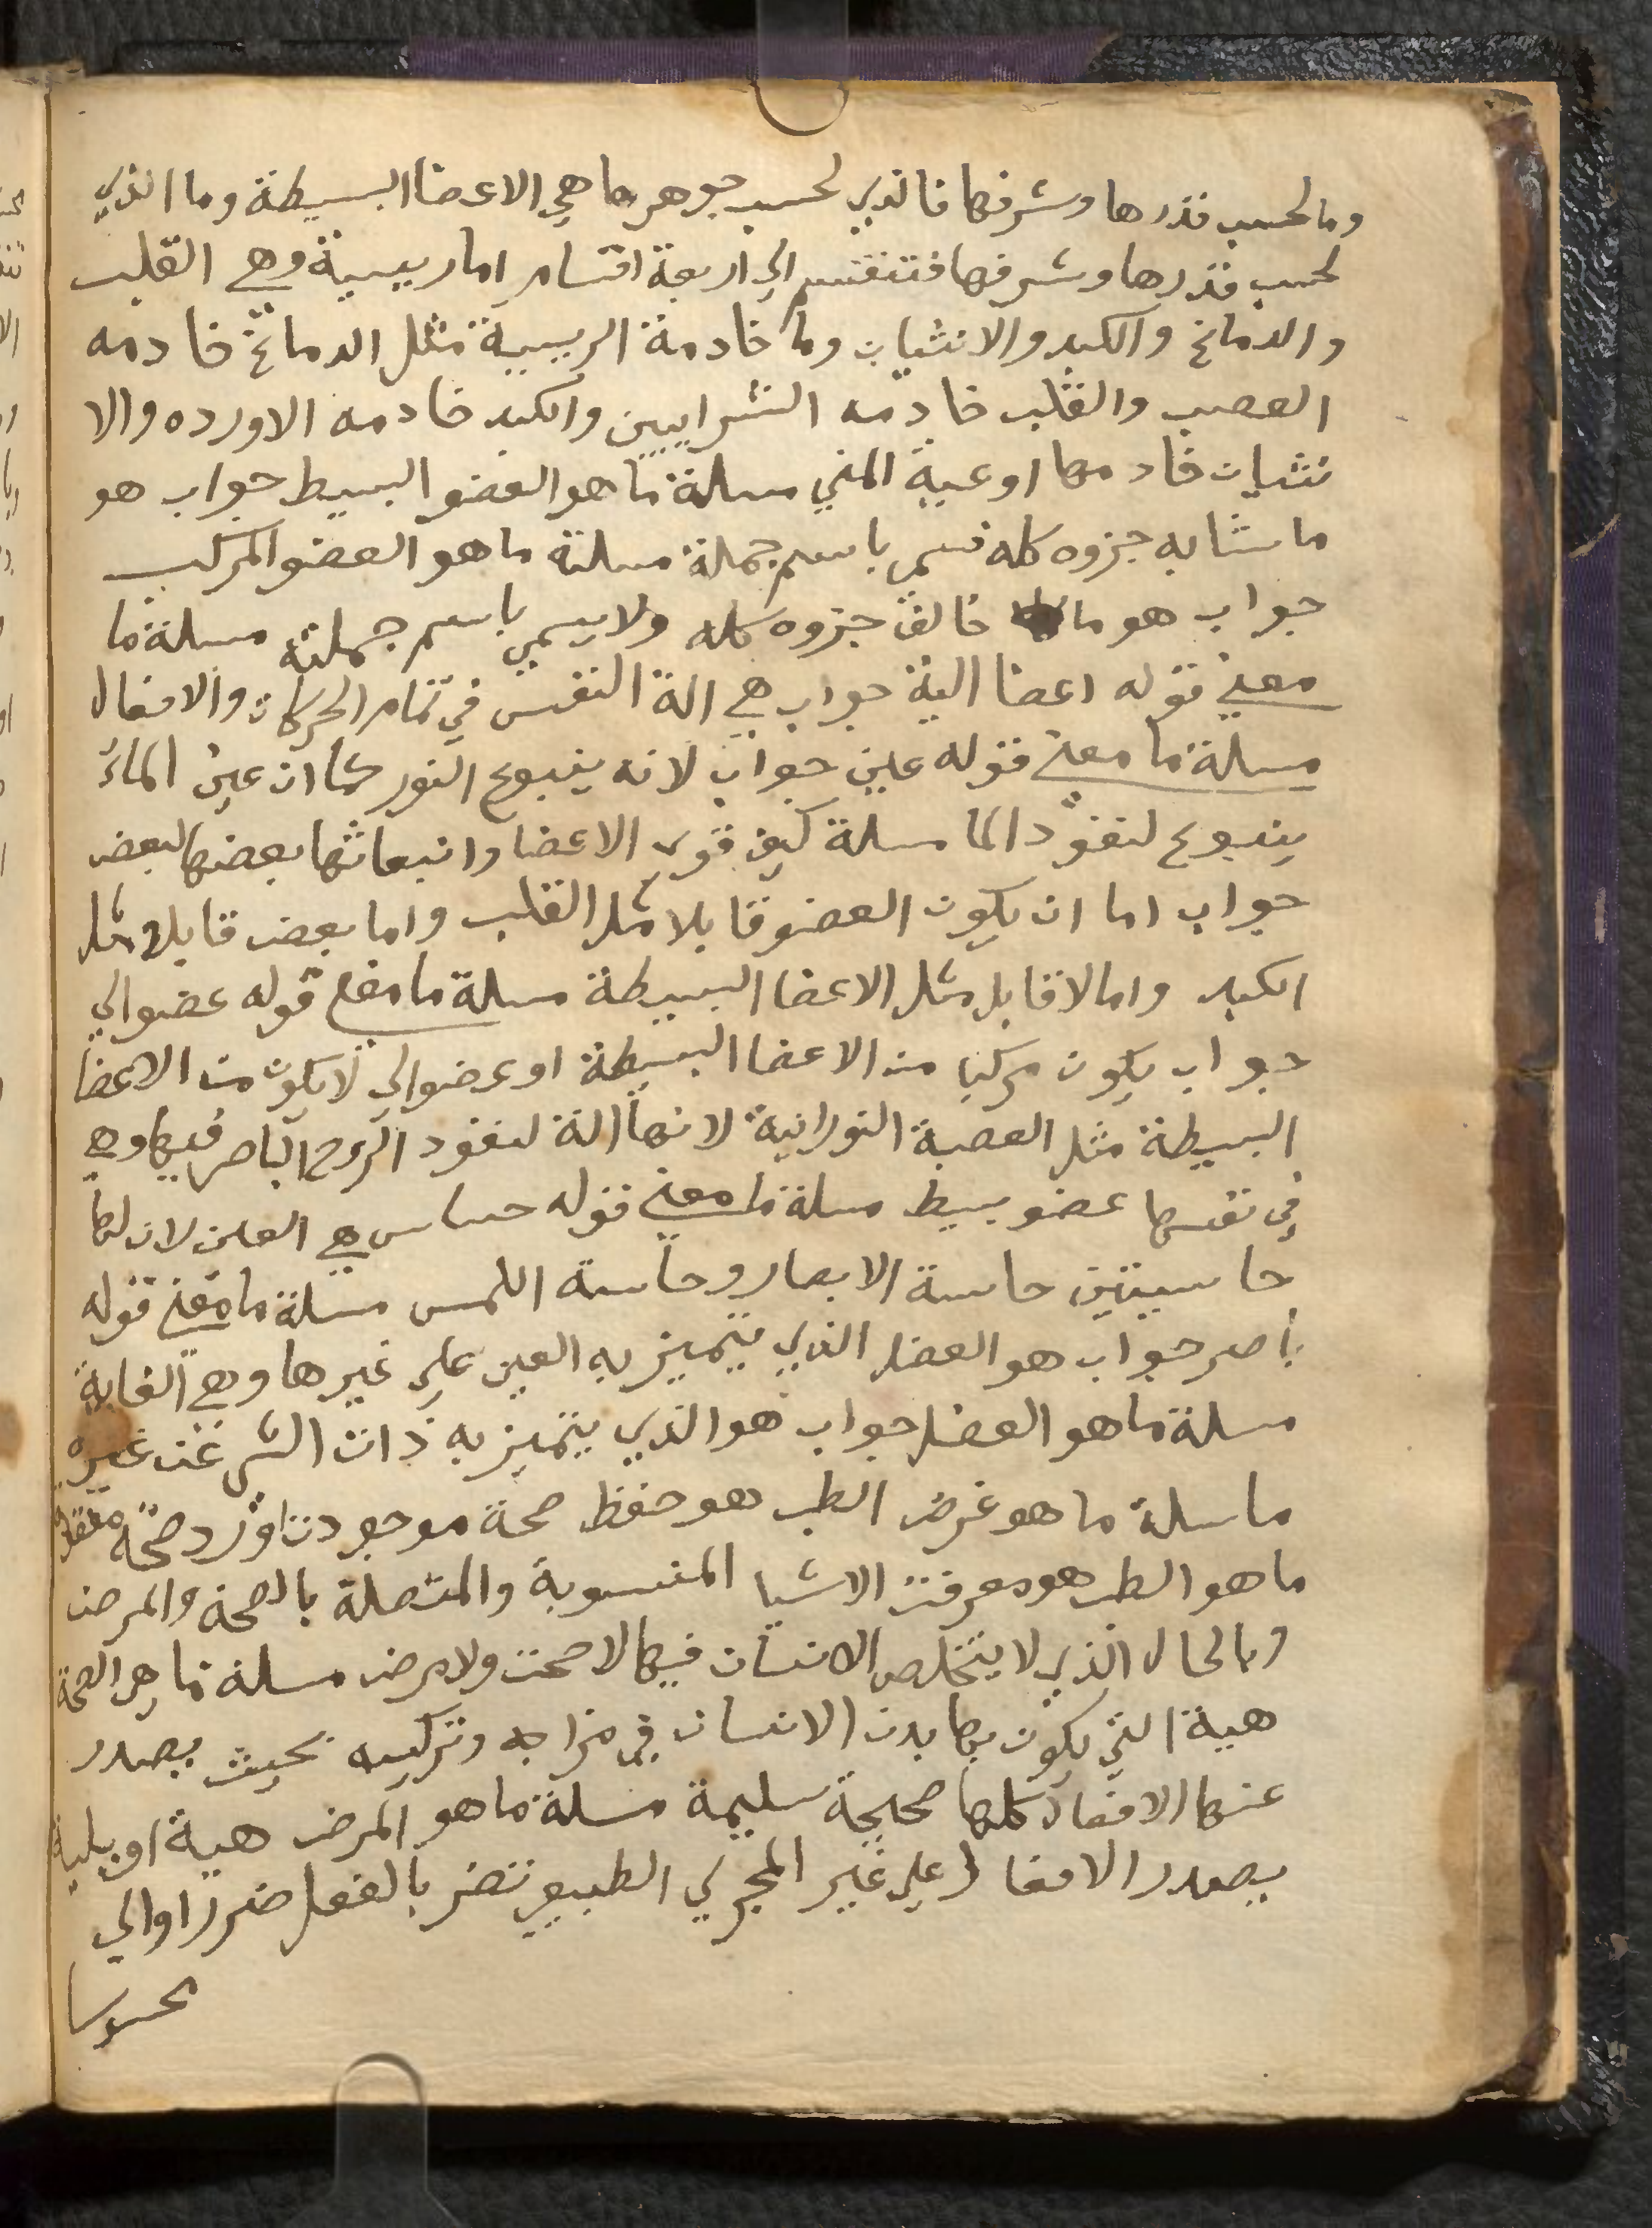 وما لحسب قدرها وشرفها فالذي لحسب جوهرها هي الاعضا البسيطة وما الذي
لحسب قدرها وشرفها فتنقسم الي اربعة اقسام اما رييسية وهي القلب
والدماغ والكبد والانثيات وما خادمة الرييسية مثل الدماغ خادمه
العصب والقلب خادمه الشرايين والكبد خادمه الاورده والا
نثيات خادمها اوعية المني مسلة ما هو العضو البسيط جواب هو
ما شابه جزوه كله تسمي باسم جملة مسلة ما هو العضو المركب
جواب هو ما خالف جزوه كله ولا يسمي باسم جملته مسلة ما
معني قوله اعضا الية جواب هي الة النفس في تمام الحركات والافعال
مسلة ما معني قوله عين جواب لانه ينبوع النور كما ان عين الماء
ينبوع لنفود الما مسلة كيف قوي الاعضا وانبعاثها بعضها لبعض
جواب اما ان يكون العضو قابلا مثل القلب واما بعض قابلا مثل
الكبد واما لا قابل مثل الاعضا البسيطة مسلة ما معني قوله عضو الي
جواب يكون مركبا من الاعضا البسيطة او عضو الي لا يكون من الاعضا
البسيطة مثل العصبة النورانية لانها الة لنفود الروح الباصر فيها وهي
في نفسها عضو بسيط مسلة ما معني قوله حساس هي العين لان لها
حاسيتين حاسة الابصار وحاسة اللمس مسلة ما معني قوله
باصر جواب هو الفصل الذي يتميز به العين علي غيرها وهي الغاية
مسلة ما هو الفصل جواب هو الذي يتميز به ذات الشي عن غيره
ما سلة ما هو غرض الطب هو حفظ صحة موجودت او رد صحة مفقو
ما هو الطب هو معرفت الاشيا المنسوبة والمتصلة بالصحة والمرض
وبالحال الذي لا يتخلص الانسان فيها لا صحت ولا مرض مسلة ما هي الصحة
هية التي يكون بها بدن الانسان في مزاجه وتركيبه بحيث يصدر
عنها الافعال كلها صحيحة سليمة مسلة ما هو المرض هية او بلية
يصدر الافعال علي غير المجري الطبيعي تضر بالفعل ضررا والي
محسوسا